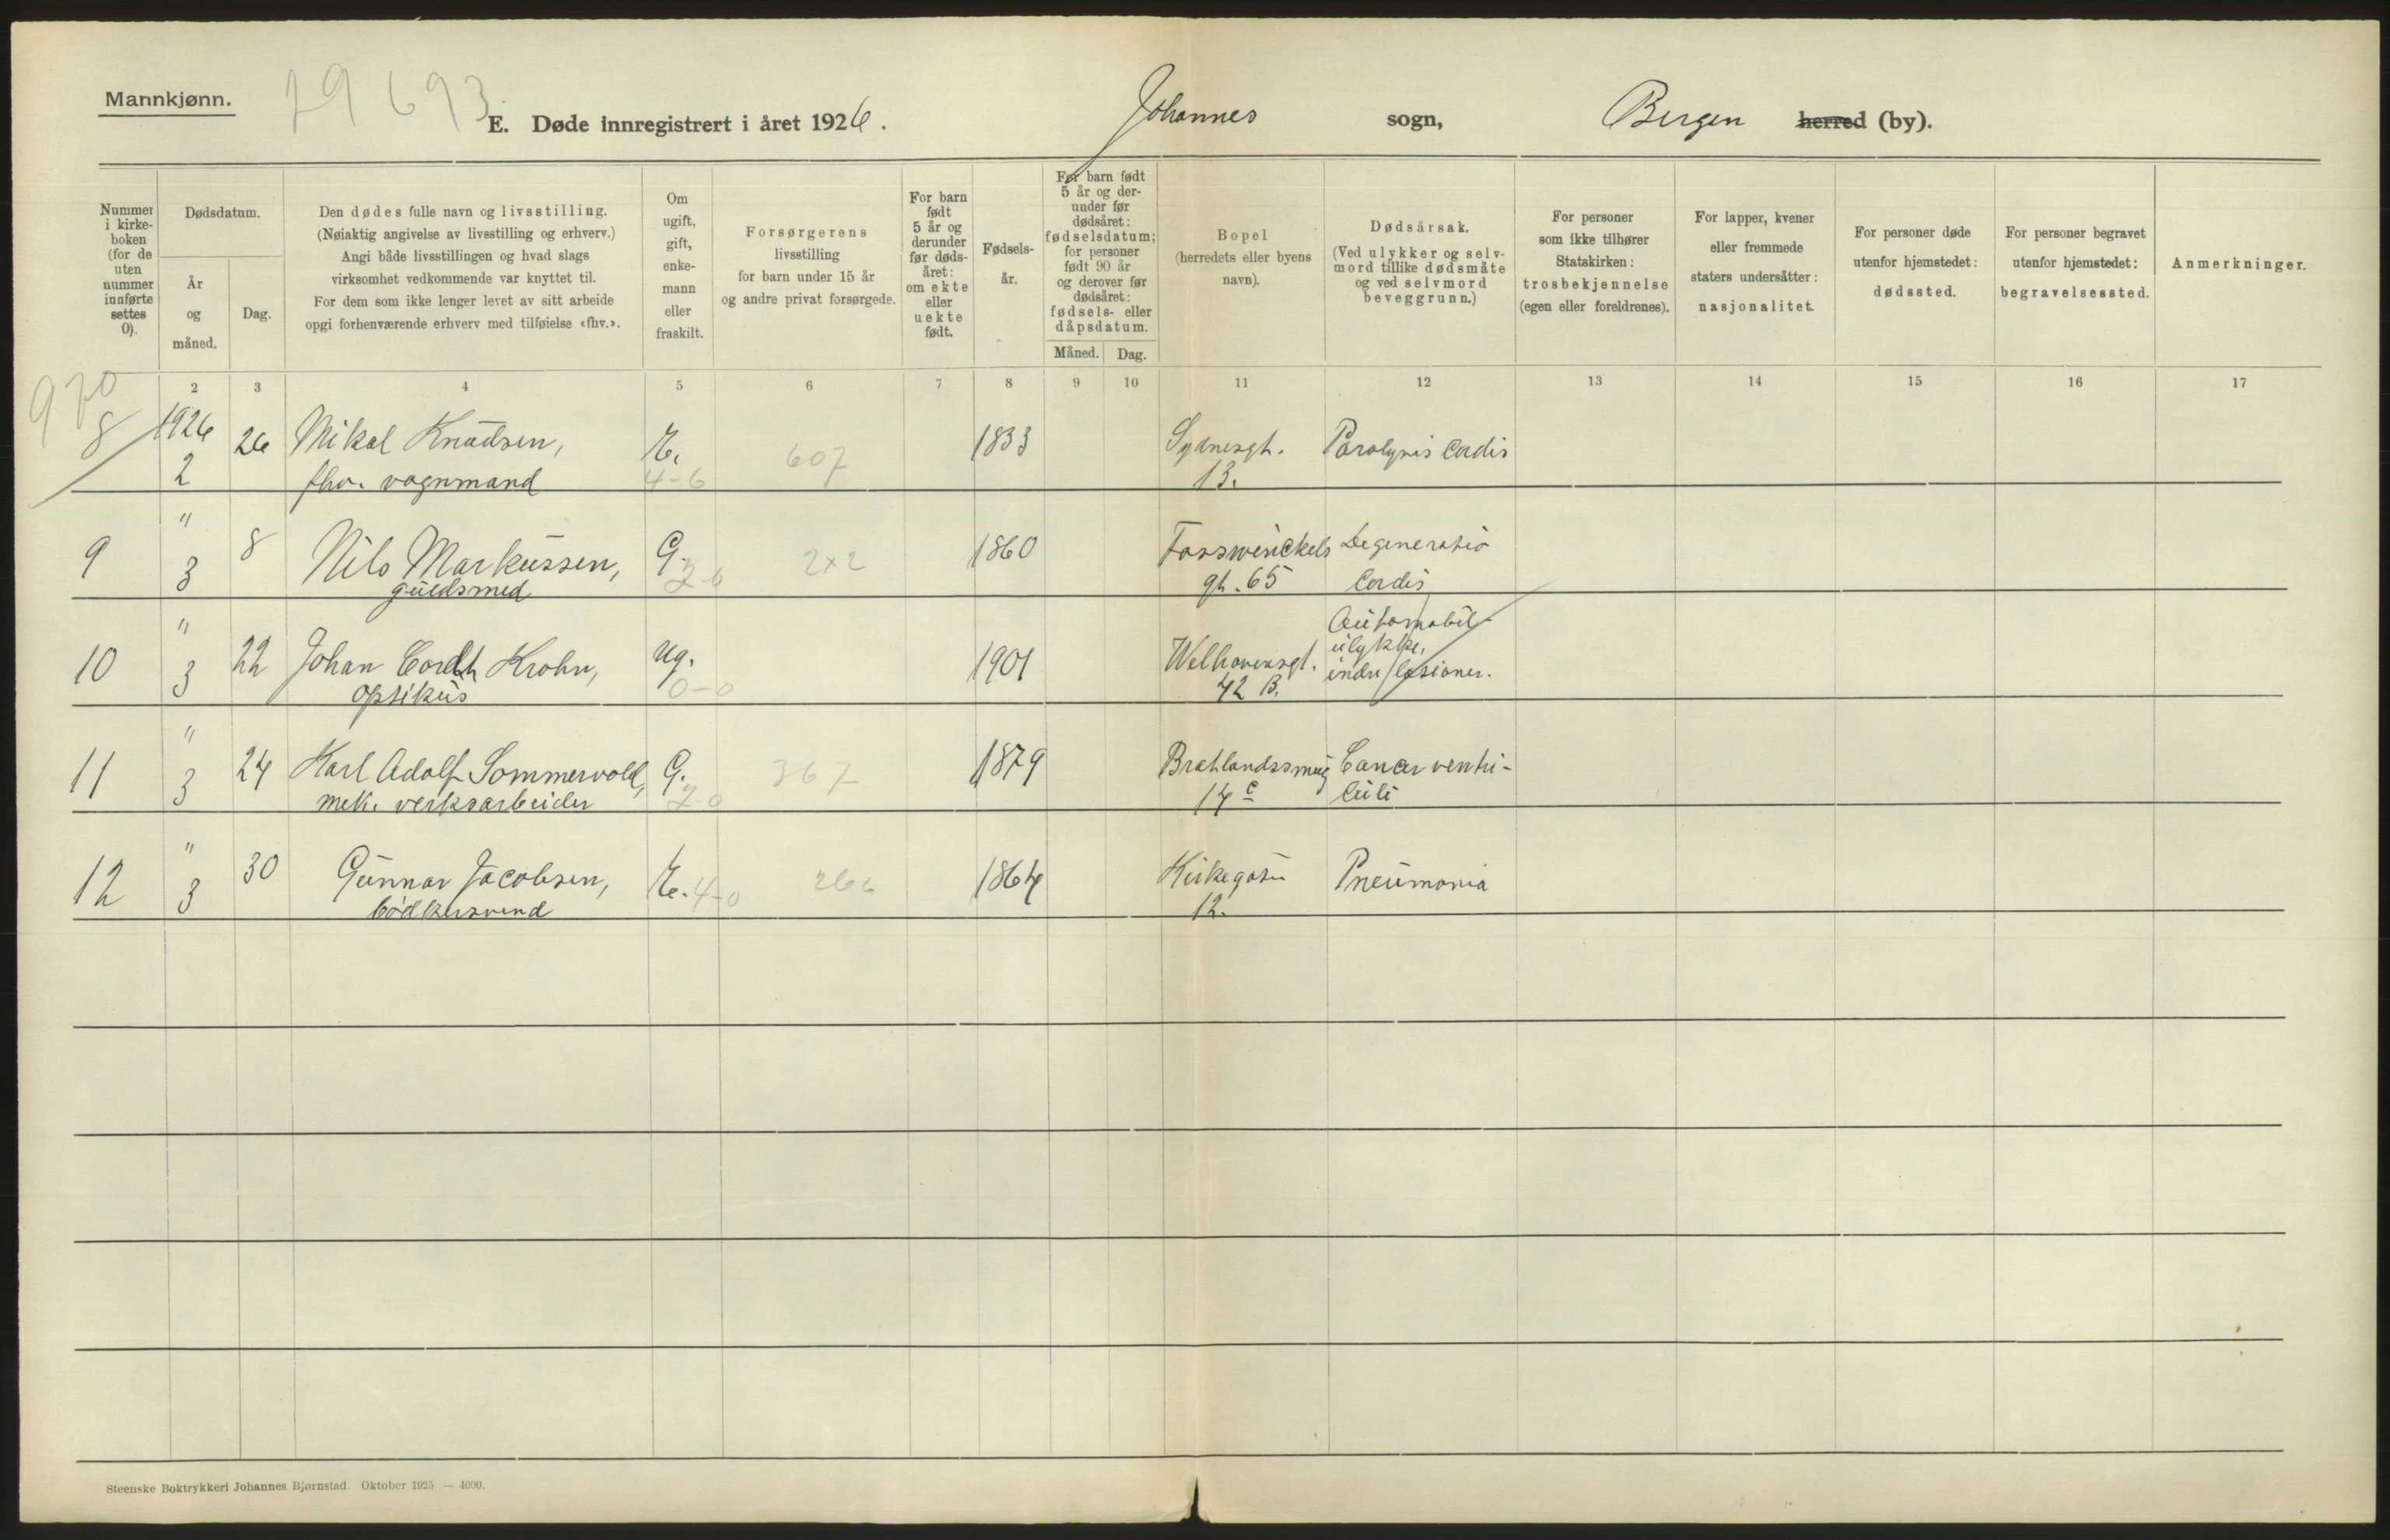 Mannkjønn.
29693
E. Døde innregistrert i året 1926. Johannes sogn, Bergen herred (by).
Nummer i kirke-boken (for de uten nummer innførte settes 0).
Dødsdatum.
År og måned.
Dag.
Den dødes fulle navn og livsstilling.
(Nøiaktig angivelse av livsstilling og erhverv.)
Angi både livsstillingen og hvad slags
virksomhet vedkommende var knyttet til.
For dem som ikke lenger levet av sitt arbeide
opgi forhenværende erhverv med tilføielse «fhv.».
Om ugift, gift, enke-mann eller fraskilt.
Forsørgerens
livsstilling
for barn under 15 år
og andre privat forsørgede.
For barn født 5 år og derunder før døds-året: om ekte eller uekte født.
Fødsels-år.
For barn født 5 år og der-under før dødsåret: fødselsdatum; for personer født 90 år og derover før dødsåret: fødsels- eller dåpsdatum.
Måned. Dag.
Bopel
(herredets eller byens
navn).
Dødsårsak.
(Ved ulykker og selv-
mord tillike dødsmåte
og ved selvmord
beveggrunn.)
For personer
som ikke tilhører
Statskirken:
trosbekjennelse
(egen eller foreldrenes).
For lapper, kvener
eller fremmede
staters undersåtter:
nasjonalitet.
For personer døde
utenfor hjemstedet:
dødssted.
For personer begravet
utenfor hjemstedet:
begravelsessted.
Anmerkninger.
2 3 4 5 6 7 8 9 10 11 12 13 14 15 16 17
970
8 1926 26 Mikal Knudsen, E. 607 1833 Sydnesgt. Paralysis Cordis
2 fhv. vognmand 4-6 13.
9 " 8 Nils Markussen, G. 2-0 2x2 1860 Fosswinckels Degeneratio
3 gullsmed gt. 65 Cordis
10 " 22 Johan Cordt Krohn, Ug. 1901 Welhavensgt. Automobil-
ulykke,
3 optikus 0-0 42 B. indre læsioner.
11 " 24 Karl Adolf Sommervold, G. 367 1879 Bratlandssmug Cancer ventri-
3 mek. verksarbeider 2-0 14 c culi
12 " 30 Gunnar Jacobsen, E. 4-0 266 1864 Kirkegaten Pneumonia
3 bødkersvend 12.
Steenske Boktrykkeri Johannes Bjørnstad. Oktober 1925 — 4000.